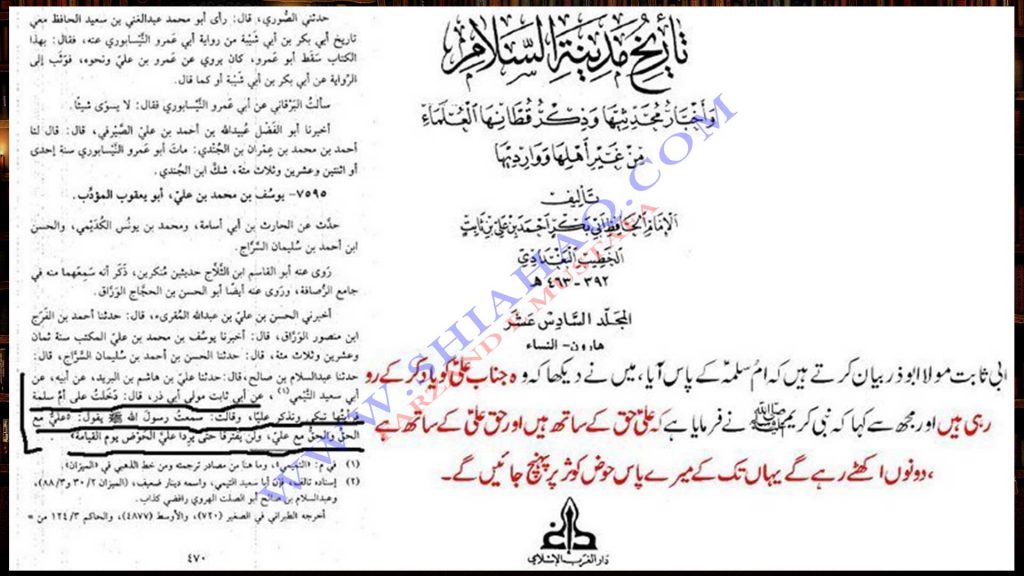 حدثني الصُّوري، قال: رأى أبو محمد عبدالغني بن سعيد الحافظ معي
تاريخ أبي بكر بن أبي شَيْبة من رواية أبي عَمرو النَّيْسابوري عنه، فقال: بهذا
الكتاب سَقَط أبو عَمرو، كان يروي عن عَمرو بن عليّ ونحوه، فوَثَب إلى
الرِّواية عن أبي بكر بن أبي شَيْبة أو كما قال.
سألتُ البَرْقاني عن أبي عَمرو النَّيْسابوري فقال: لا يسوّى شيئًا.
أخبرنا أبو الفَضْل عُبيدالله بن أحمد بن عليّ الصَّيْرفي، قال: قال لنا
أحمد بن محمد بن عِمْران بن الجُنْدي: ماتَ أبو عَمرو النَّيْسابوري سنة إحدى
أو اثنتين وعشرين وثلاث مئة، شكَّ ابن الجُندي.
٧٥٩٥- يوسُف بن محمد بن عليّ، أبو يعقوب المؤدِّب.
حدَّث عن الحارث بن أبي أسامة، ومحمد بن يونُس الكُدَيْمي، والحسن
ابن أحمد بن سُليمان السَّرَّاج.
رَوى عنه أبو القاسم ابن الثَّلاَّج حديثين مُنكرين، ذَكَر أنه سَمِعَهما منه في
جامع الرُّصافة، وروى عنه أيضًا أبو الحسن بن الحجَّاج الوَرَّاق.
أخبرني الحسن بن عليّ بن عبدالله المُقرىء، قال: حدثنا أحمد بن الفَرَج
ابن منصور الوَرَّاق، قال: أخبرنا يوسُف بن محمد بن عليّ المكتب سنة ثمان
وعشرين وثلاث مئة، قال: حدثنا الحسن بن أحمد بن سُليمان السَّرَّاج، قال:
حدثنا عبدالسلام بن صالح، قال: حدثنا عليّ بن هاشم بن البريد، عن أبيه، عن
أبي سعيد التَّيْمي(١)، عن أبي ثابت مولى أبي ذر، قال: دَخَلتُ على أم سَلَمة
فرأيتها تبكي وتذكر عليًّا، وقالت: سمعتُ رسولَ الله ﷺ يقول: «عليٌّ مع
الحقّ والحقُّ مع عليّ، ولن يفترقا حتى يَرِدا عليَّ الحَوْضَ يوم القيامة»
(١) في م: «التميمي»، وما هنا من مصادر ترجمته ومن خط الذهبي في «الميزان».
(٢) إسناده تالف، فإن أبا سعيد التيمي، واسمه دينار ضعيف، (الميزان ٢/ ٣٠ و٣/ ٨٨)،
وعبدالسلام بن صالح أبو الصلت الهروي رافضي كذاب.
أخرجه الطبراني في الصغير (٧٢٠)، والأوسط (٤٨٧٧)، والحاكم ٣/ ١٢٤ من =
٤٧٠
تاريخ مدينة السلام
وَأَخْبَارُ مُحَدِّثِيهَا وَذِكْرُ قُطَّانِهَا العُلَمَاءِ
مِنْ غَيْرِ أَهْلِهَا وَوَارِدِيهَا
تأليف
الإمام الحافظ أبي بكر أحمد بن علي بن ثابت
الخطيب البغدادي
٣٩٢ - ٤٦٣ هـ
المجلد السادس عشر
هارون - النساء
ابی ثابت مولا ابو ذر بیان کرتے ہیں کہ ام سلمہؓ کے پاس آیا، میں نے دیکھا کہ وہ جناب علیؑ کو یاد کر کے رو
رہی ہیں اور مجھ سے کہا کہ نبی کریم ﷺ نے فرمایا ہے کہ علیؑ حق کے ساتھ ہیں اور حق علیؑ کے ساتھ ہے
، دونوں اکھٹے رہے گے یہاں تک کے میرے پاس حوض کوثر پر پہنچ جائیں گے۔
دار الغرب الإسلامي
WWW.SHIAHAQ.COM
FARZAND E MUSTAFA